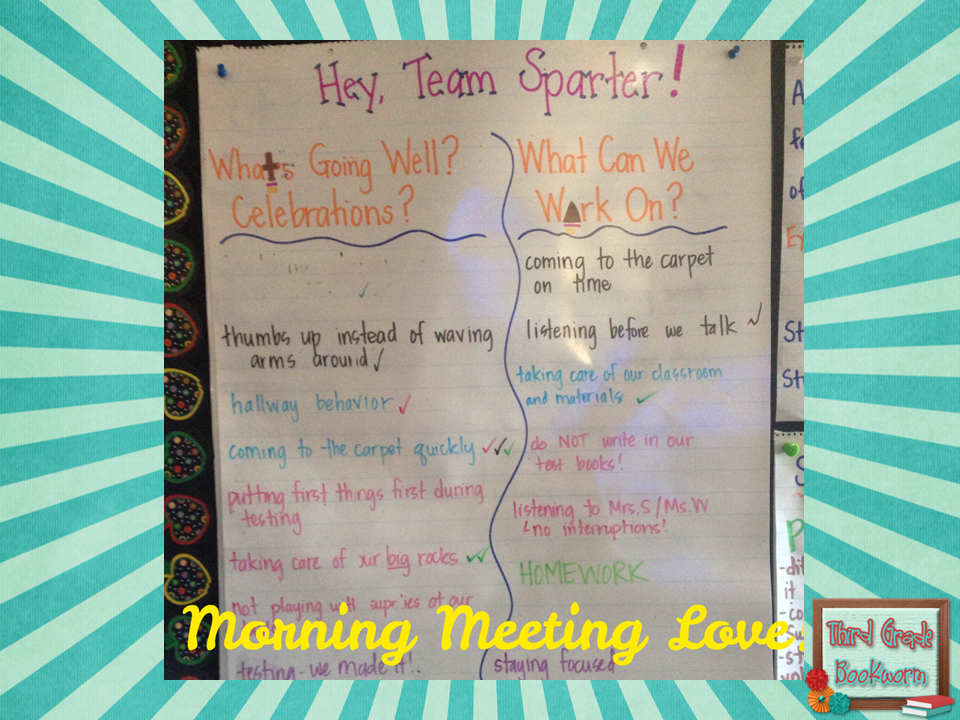 Hey, Team Sparter!
What's Going Well?
Celebrations?
thumbs up instead of waving
arms around ✓
hallway behavior ✓
coming to the carpet quickly ✓✓✓
putting first things first during
testing
taking care of our big rocks ✓✓
not playing with supplies at our
testing - we made it!!
What Can We
Work On?
coming to the carpet
on time
listening before we talk ✓
taking care of our classroom
and materials ✓
do NOT write in our
test books!
listening to Mrs.S/Ms.W
no interruptions!
HOMEWORK
staying focused
Morning Meeting Love
Third Grade
Bookworm